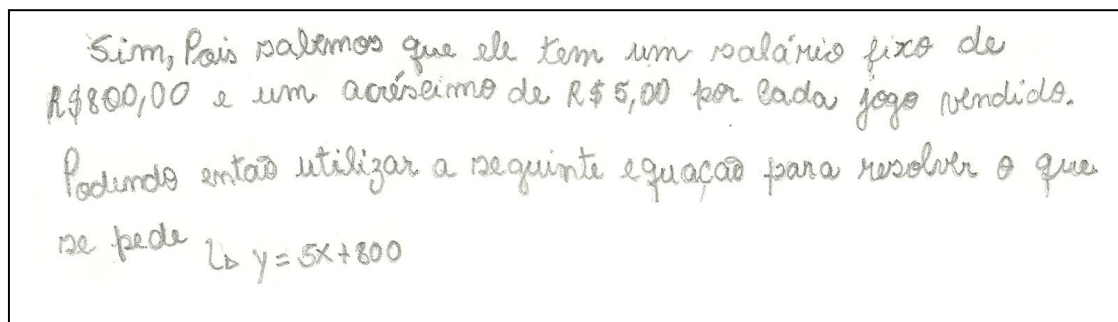 Sim, Pois sabemos que ele tem um salário fixo de
R$800,00 e um acréscimo de R$ 5,00 por cada jogo vendido.
Podendo então utilizar a seguinte equação para resolver o que
se pede ↳ y = 5x + 800